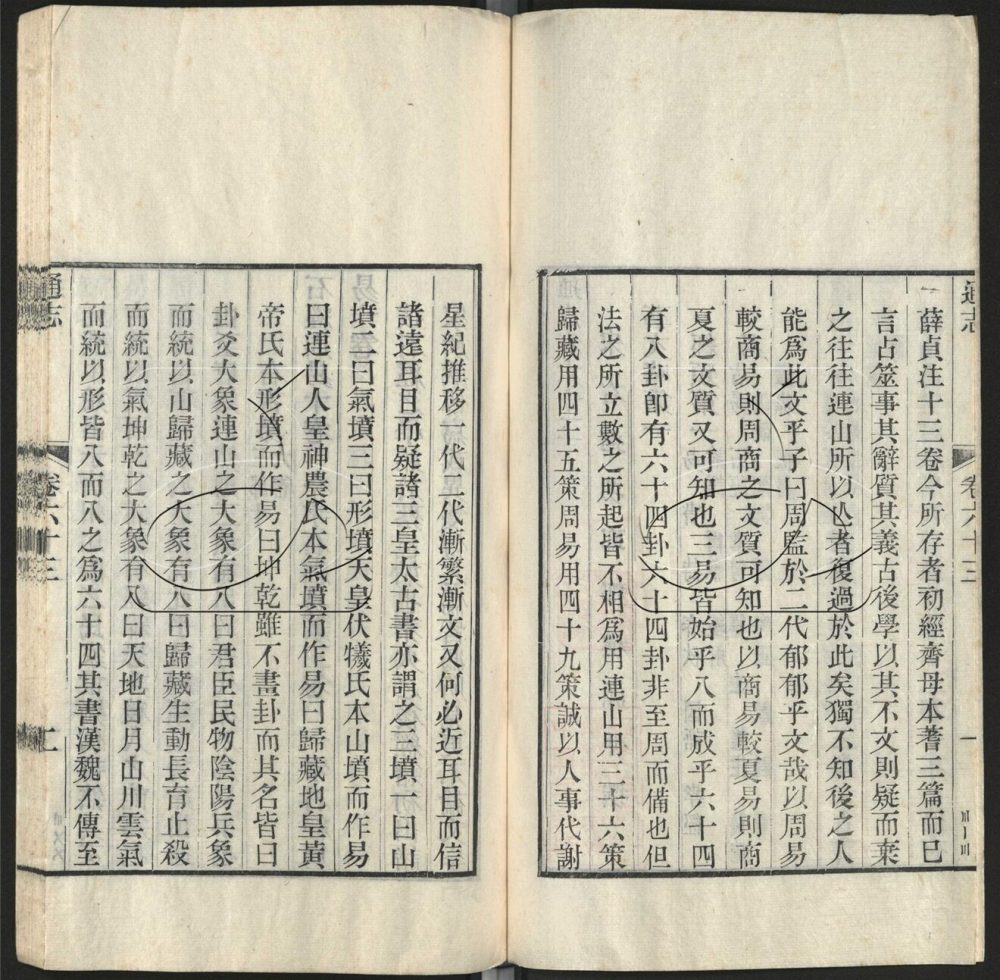 通志
卷六十三
一
薛貞注十三卷今所存者初經齊母本蓍三篇而已
言占筮事其辭質其義古後學以其不文則疑而棄
之往往連山所以亡者復過於此矣獨不知後之人
能爲此文乎子曰周監於二代郁郁乎文哉以周易
較商易則周商之文質可知也以商易較夏易則商
夏之文質又可知也三易皆始乎八而成乎六十四
有八卦卽有六十四卦六十四卦非至周而備也但
法之所立數之所起皆不相爲用連山用三十六策
歸藏用四十五策周易用四十九策誠以人事代謝
星紀推移一代一代漸繁漸文又何必近耳目而信
諸遠耳目而疑諸三皇太古書亦謂之三墳一曰山
墳二曰氣墳三曰形墳天皇伏犧氏本山墳而作易
曰連山人皇神農氏本氣墳而作易曰歸藏地皇黃
帝氏本形墳而作易曰坤乾雖不畫卦而其名皆曰
卦爻大象連山之大象有八曰君臣民物陰陽兵象
而統以山歸藏之大象有八曰歸藏生動長育止殺
而統以氣坤乾之大象有八曰天地日月山川雲氣
而統以形皆八而八之爲六十四其書漢魏不傳至
通志
卷六十三